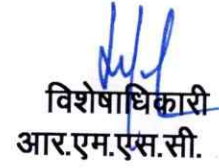 विशेषाधिकारी
आर.एम.एस.सी.